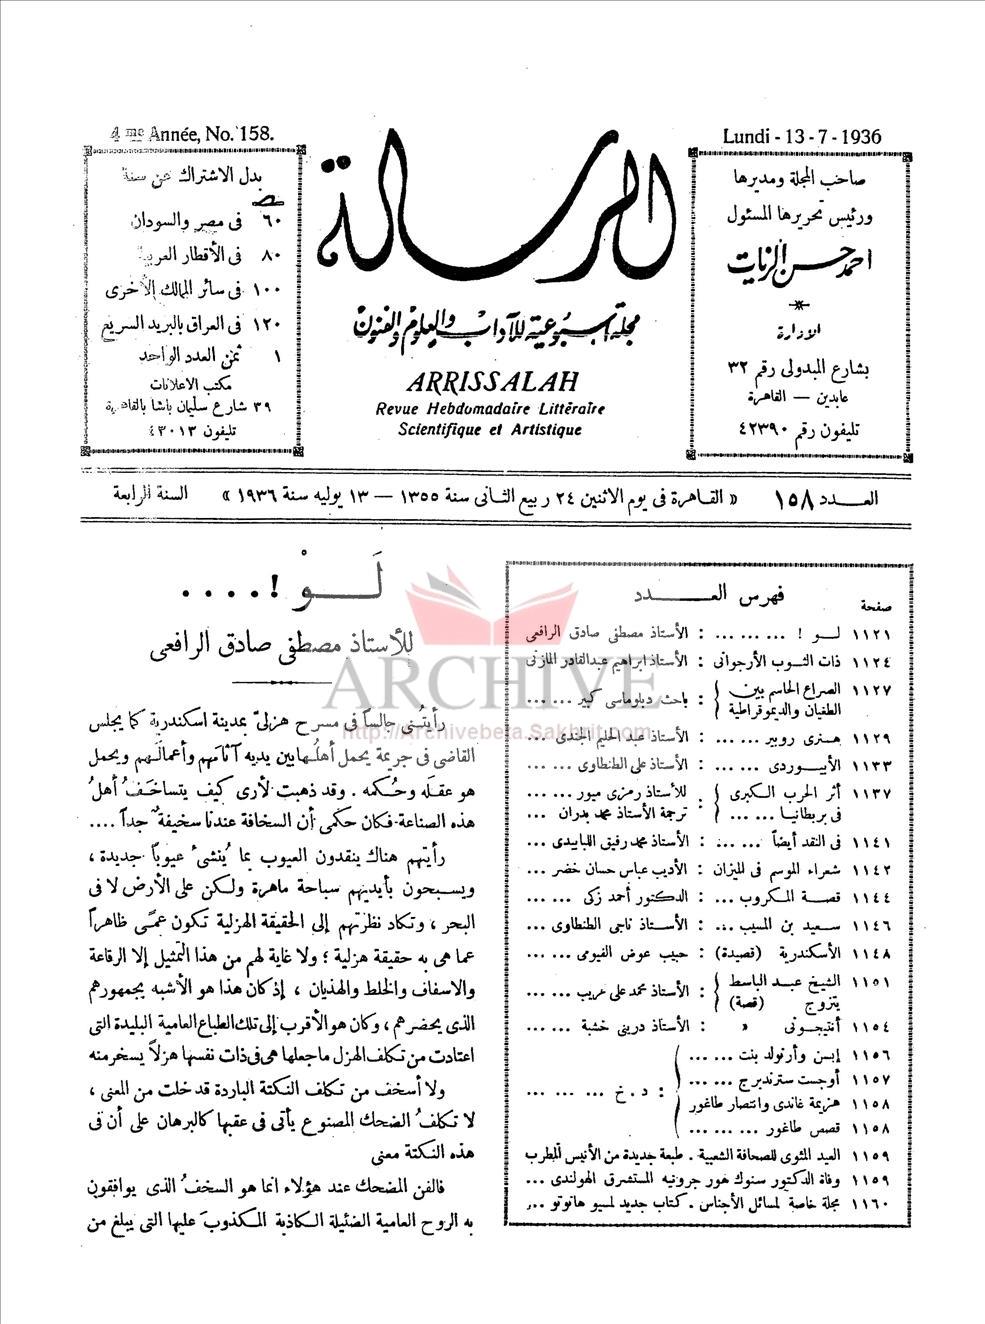 4me Année, No. 158.
Lundi - 13 - 7 - 1936
صاحب المجلة ومديرها
ورئيس تحريرها المسئول
احمد حسن الزيات
الإدارة
بشارع المبدولى رقم ٣٢
عابدين — القاهرة
تليفون رقم ٤٢٣٩٠
الرسالة
مجلة أسبوعية للآداب والعلوم والفنون
ARRISSALAH
Revue Hebdomadaire Littéraire
Scientifique et Artistique
بدل الاشتراك عن سنة
٦٠ فى مصر والسودان
٨٠ فى الأقطار العربية
١٠٠ فى سائر الممالك الأخرى
١٢٠ فى العراق بالبريد السريع
١ ثمن العدد الواحد
مكتب الاعلانات
٣٩ شارع سليمان باشا بالقاهرة
تليفون ٤٣٠١٣
العـدد ١٥٨ « القاهرة فى يوم الاثنين ٢٤ ربيع الثانى سنة ١٣٥٥ — ١٣ يوليه سنة ١٩٣٦ » السنة الرابعة
فهرس العـــدد
صفحة
١١٢١ لـو ! ... ... ... : الأستاذ مصطفى صادق الرافعى
١١٢٤ ذات الثوب الأرجوانى : الأستاذ ابراهيم عبدالقادر المازنى
١١٢٧ الصراع الحاسم بين الطغيان والديموقراطية : باحث دبلوماسى كبير ... ...
١١٢٩ هنرى روبير ... ... : الأستاذ عبد الحليم الجندى ...
١١٣٣ الأبيوردى ... ... : الأستاذ على الطنطاوى ... ...
١١٣٧ أثر الحرب الكبرى فى بريطانيا ... ... : للأستاذ رمزى ميور ... ... ترجمة الأستاذ محمد بدران ...
١١٤١ فى النقد أيضاً ... ... : الأستاذ محمد رفيق اللبابيدى ...
١١٤٢ شعراء الموسم فى الميزان : الأديب عباس حسان خضر ...
١١٤٤ قصة المكروب ... : الدكتور أحمد زكى ... ...
١١٤٦ سعيد بن المسيب ... : الأستاذ ناجى الطنطاوى ...
١١٤٨ الأسكندرية (قصيدة) : حبيب عوض الفيومى ... ...
١١٥١ الشيخ عبد الباسط يتزوج (قصة) : الأستاذ محمد على غريب ... ...
١١٥٤ أنتيجونى « : الأستاذ درينى خشبة ... ...
١١٥٦ إبسن وأرنولد بنت ... ...
١١٥٧ أوجست سترندبرج ... ...
: د . خ ... ... ...
١١٥٨ هزيمة غاندى وانتصار طاغور
١١٥٨ قصص طاغور ... ... ...
١١٥٩ العيد المئوى للصحافة الشعبية . طبعة جديدة من الأنيس المطرب
١١٥٩ وفاة الدكتور سنوك هور جرونيه المستشرق الهولندى ...
١١٦٠ مجلة خاصة لمسائل الأجناس . كتاب جديد لمسيو هانوتو ...
لَـوْ ! . . . .
للأستاذ مصطفى صادق الرافعى
رأيتُنى جالساً فى مسرح هزلىّ بمدينة اسكندرية كما يجلس
القاضى فى جريمة يحمل أهلُها بين يديه آثامهم وأعمالهم ويحمل
هو عقله وحُكمه . وقد ذهبت لأرى كيف يتساخَفُ أهلُ
هذه الصناعة فكان حكمى أن السخافة عندنا سخيفة جداً ....
رأيتهم هناك ينقدون العيوب بما يُنشئ عيوباً جديدة ،
ويسبحون بأيديهم سباحة ماهرة ولكن على الأرض لا فى
البحر ، وتكاد نظرتهم إلى الحقيقة الهزلية تكون عمًى ظاهراً
عما هى به حقيقة هزلية ؛ ولا غاية لهم من هذا التمثيل إلا الرقاعة
والاسفاف والخلط والهذيان ، إذ كان هذا هو الأشبه بجمهورهم
الذى يحضرهم ، وكان هو الأقرب إلى تلك الطباع العامية البليدة التى
اعتادت من تكلف الهزل ما جعلها هى فى ذات نفسها هزلاً يسخر منه
ولا أسخف من تكلف النكتة الباردة قد خلت من المعنى ،
لا تكلفُ الضحك المصنوع يأتى فى عقبها كالبرهان على أن فى
هذه النكتة معنى
فالفن المضحك عند هؤلاء انما هو السخفُ الذى يوافقون
به الروح العامية الضئيلة الكاذبة المكذوبَ عليها التى يبلغ من
ARCHIVE
http://Archivebeta.Sakhrit.com